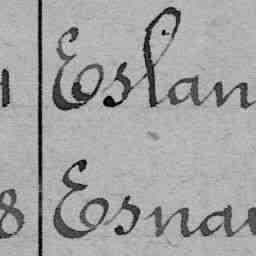 1 Eslan
8 Esnau